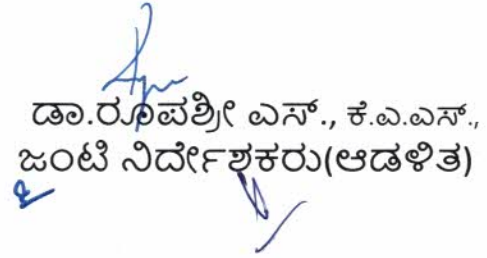 ಡಾ.ರೂಪಶ್ರೀ ಎಸ್., ಕೆ.ಎ.ಎಸ್.,
ಜಂಟಿ ನಿರ್ದೇಶಕರು(ಆಡಳಿತ)